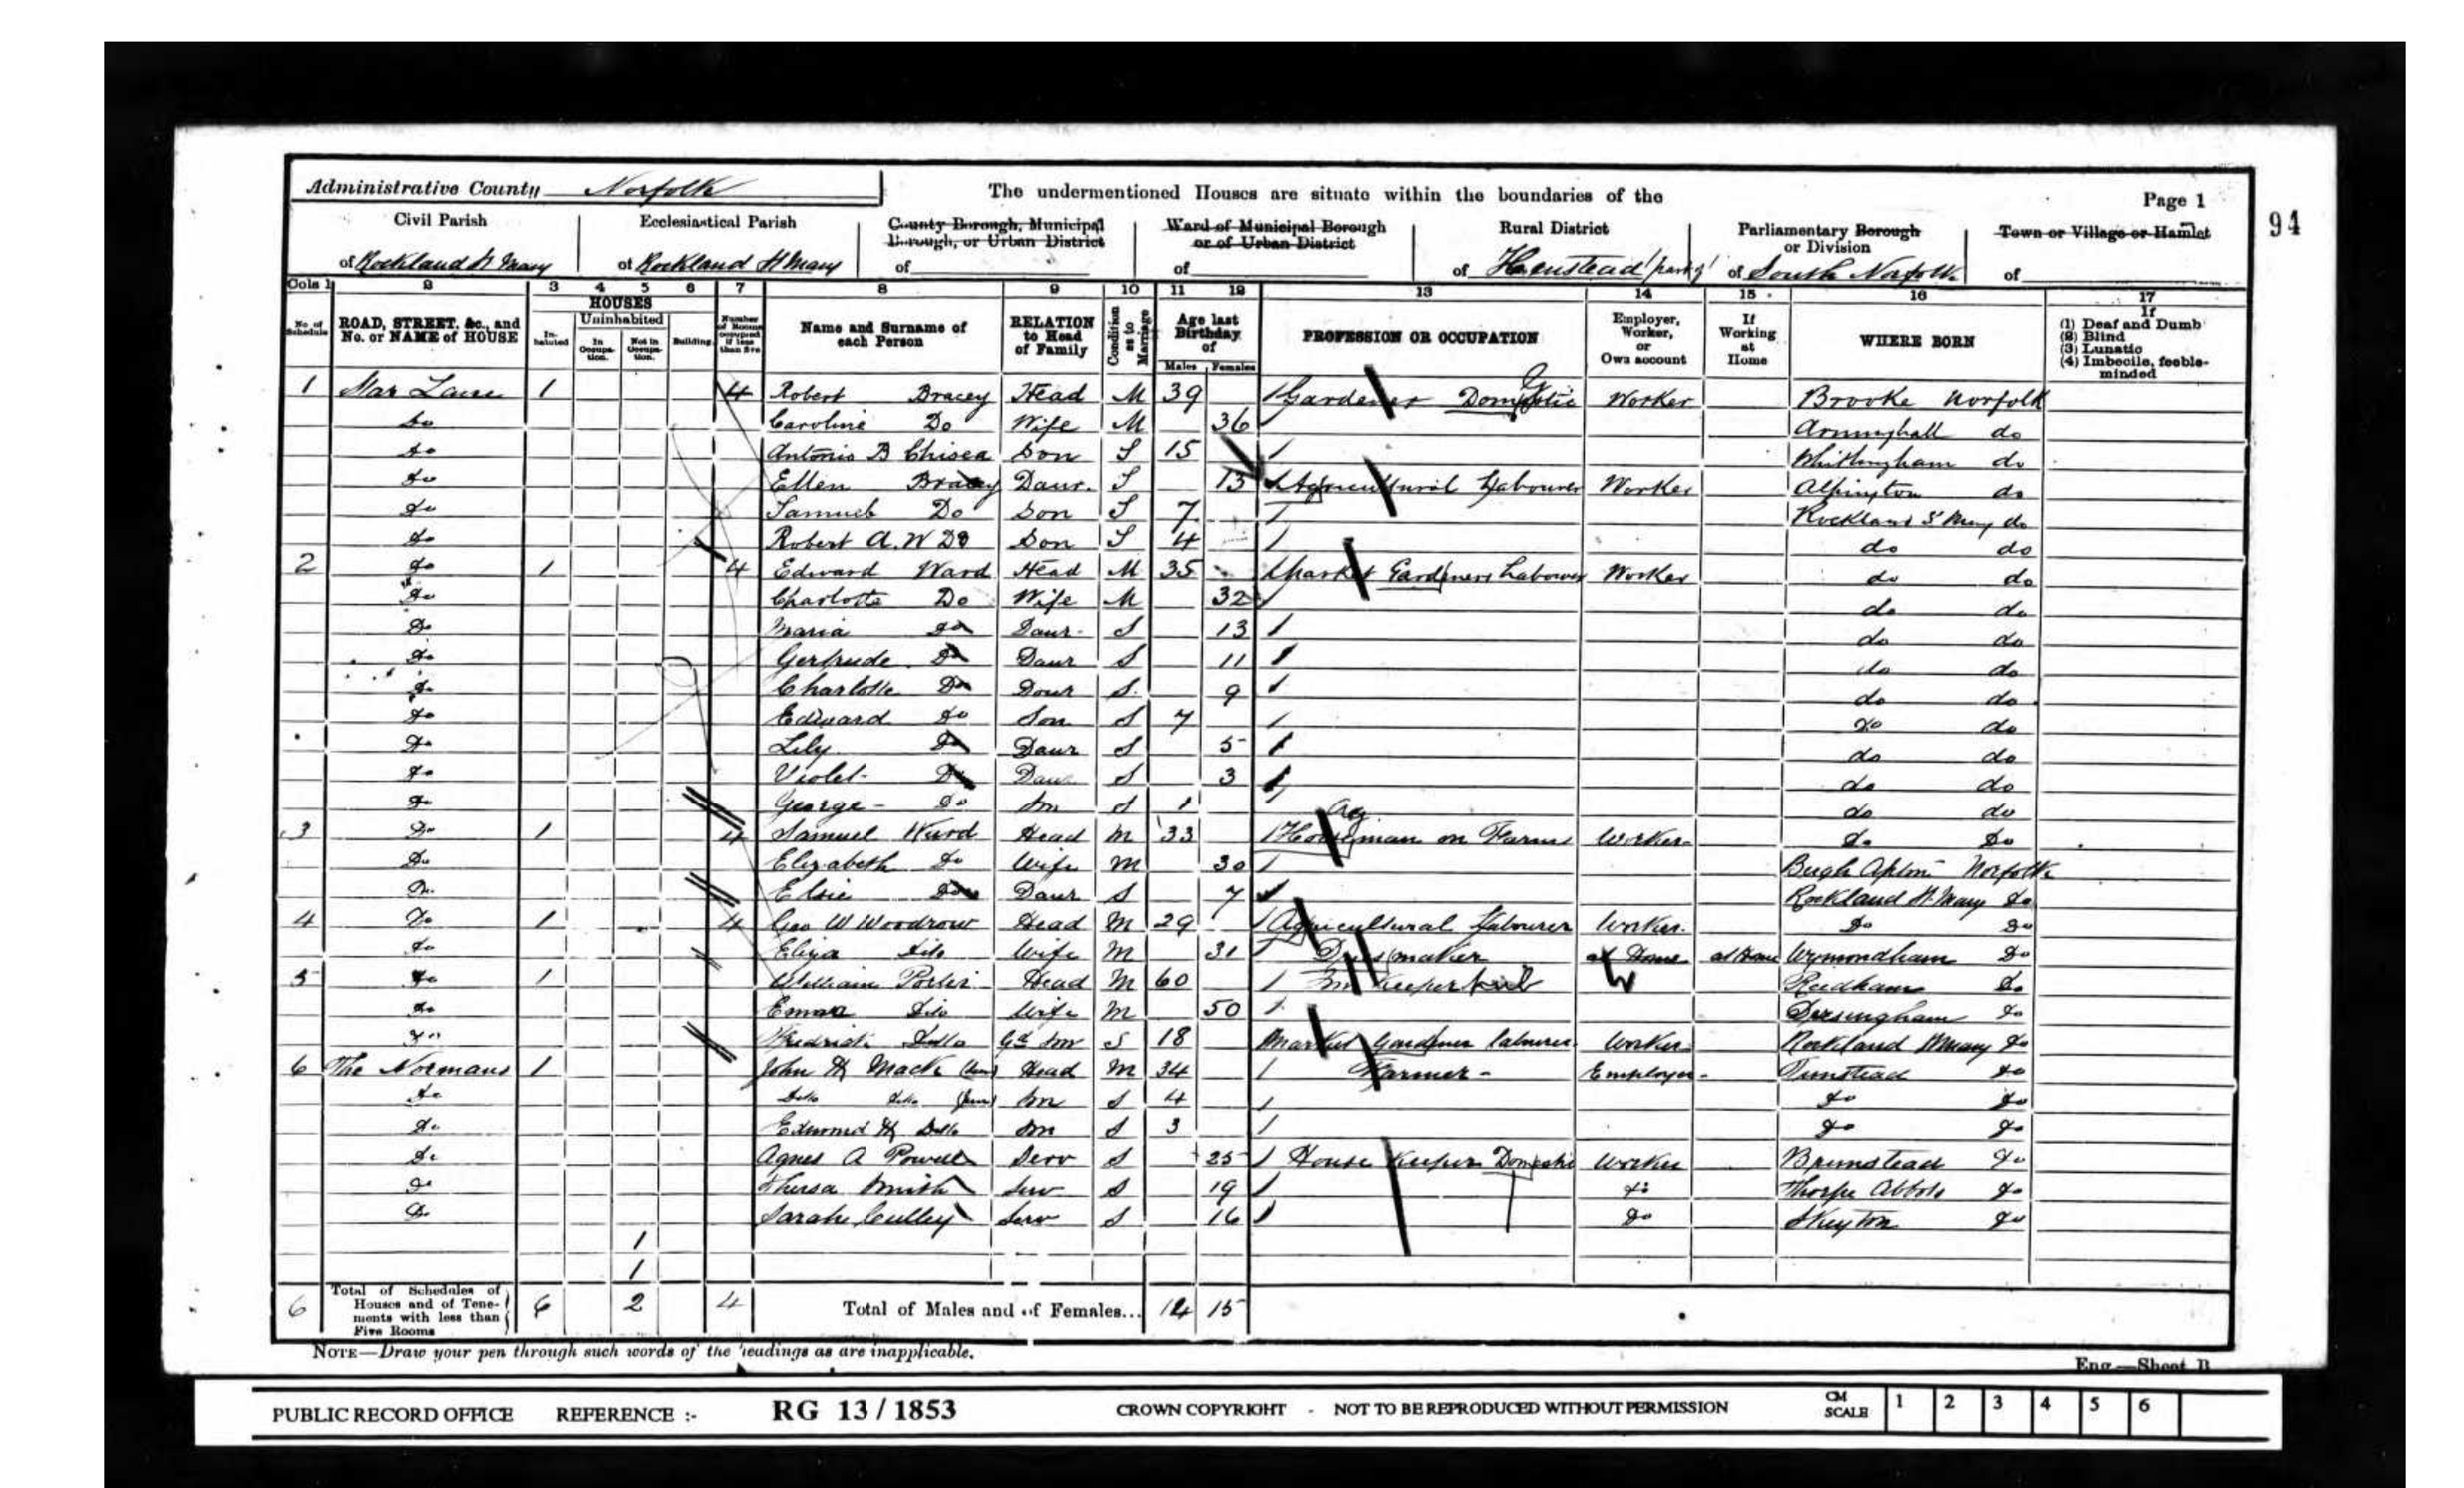 Administrative County Norfolk
The undermentioned Houses are situate within the boundaries of the
Page 1
94
Civil Parish
Ecclesiastical Parish
County Borough, Municipal Borough, or Urban District
Ward of Municipal Borough or of Urban District
Rural District
Parliamentary Borough or Division
Town or Village or Hamlet
of Rockland St Mary
of Rockland St Mary
of
of
of Henstead (part of)
of South Norfolk
of
Cols 1 2 3 4 5 6 7 8 9 10 11 12 13 14 15 16 17
No. of Schedule
ROAD, STREET, &c., and No. or NAME of HOUSE
HOUSES
Inhabited
Uninhabited
In Occupation.
Not in Occupation.
Building.
Number of Rooms occupied if less than five
Name and Surname of each Person
RELATION to Head of Family
Condition as to Marriage
Age last Birthday of
Males Females
PROFESSION OR OCCUPATION
Employer, Worker, or Own account
If Working at Home
WHERE BORN
If (1) Deaf and Dumb (2) Blind (3) Lunatic (4) Imbecile, feeble-minded
1 Lane 1 4 Robert Bracey Head M 39 Gardener Domestic Worker Brooke Norfolk
do Caroline Do Wife M 36 Arminghall do
do Antonio B Chisea Son S 15 Whitlingham do
do Ellen Bracey Daur. S 13 Agricultural Labourer Worker Alpington do
do Samuel Do Son S 7 Rockland St Mary do
do Robert A. W Do Son S 4 do do
2 do 1 4 Edward Ward Head M 35 Market Gardeners Labourer Worker do do
do Charlotte Do Wife M 32 do do
Do Maria do Daur. S 13 do do
do Gertrude Do Daur S 11 do do
do Charlotte Do Daur S. 9 do do
do Edward do Son S 7 do do
do Lily Do Daur S 5 do do
do Violet Do Daur S 3 do do
do George do Son S 1 do do
Ag.
3 Do 1 4 Samuel Ward Head M 33 Horseman on Farm Worker do Do
Do Elizabeth Do Wife M 30 Bergh Apton Norfolk
Do Elsie Do Daur S 7 Rockland St Mary Do
4 Do 1 4 Geo W Woodrow Head M 29 Agricultural Labourer Worker Do Do
do Eliza Dito Wife M 31 Dressmaker at Home Wymondham Do
5 do 1 William Porter Head M 60 Inn Keeper W Reedham Do
do Emma Dito Wife M 50 Dersingham Do
do Ditto Gd Son S 18 Market Gardener labourer Worker Rockland St Mary Do
6 The Normans 1 John H Mack (Sen) Head M 34 Farmer Employer Tunstead Do
do Ditto Ditto (Jun) Son S 4 do do
do Edmond H Ditto Son S 3 do do
do Agnes A Powell Serv S 25 House Keeper Domestic Worker Brumstead Do
do Thirsa Smith Serv S 19 do Thorpe Abbots Do
Do Sarah Culley Serv S 16 Do Skeyton Do
1
1
6 Total of Schedules of Houses and of Tenements with less than Five Rooms 6 2 4 Total of Males and of Females... 14 15
NOTE—Draw your pen through such words of the headings as are inapplicable.
Eng.—Sheet B
PUBLIC RECORD OFFICE REFERENCE :- RG 13 / 1853 CROWN COPYRIGHT - NOT TO BE REPRODUCED WITHOUT PERMISSION CM SCALE 1 2 3 4 5 6